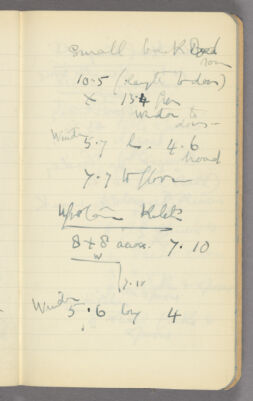 small back Bed
room
10.5 (length to door)
x 13.4 from
Window to
door -
Window
5.7 h. 4.6
broad
7.7 to floor
Upstairs
8 x 8 across. 7.10
W
7.10
Window
5.6 by 4